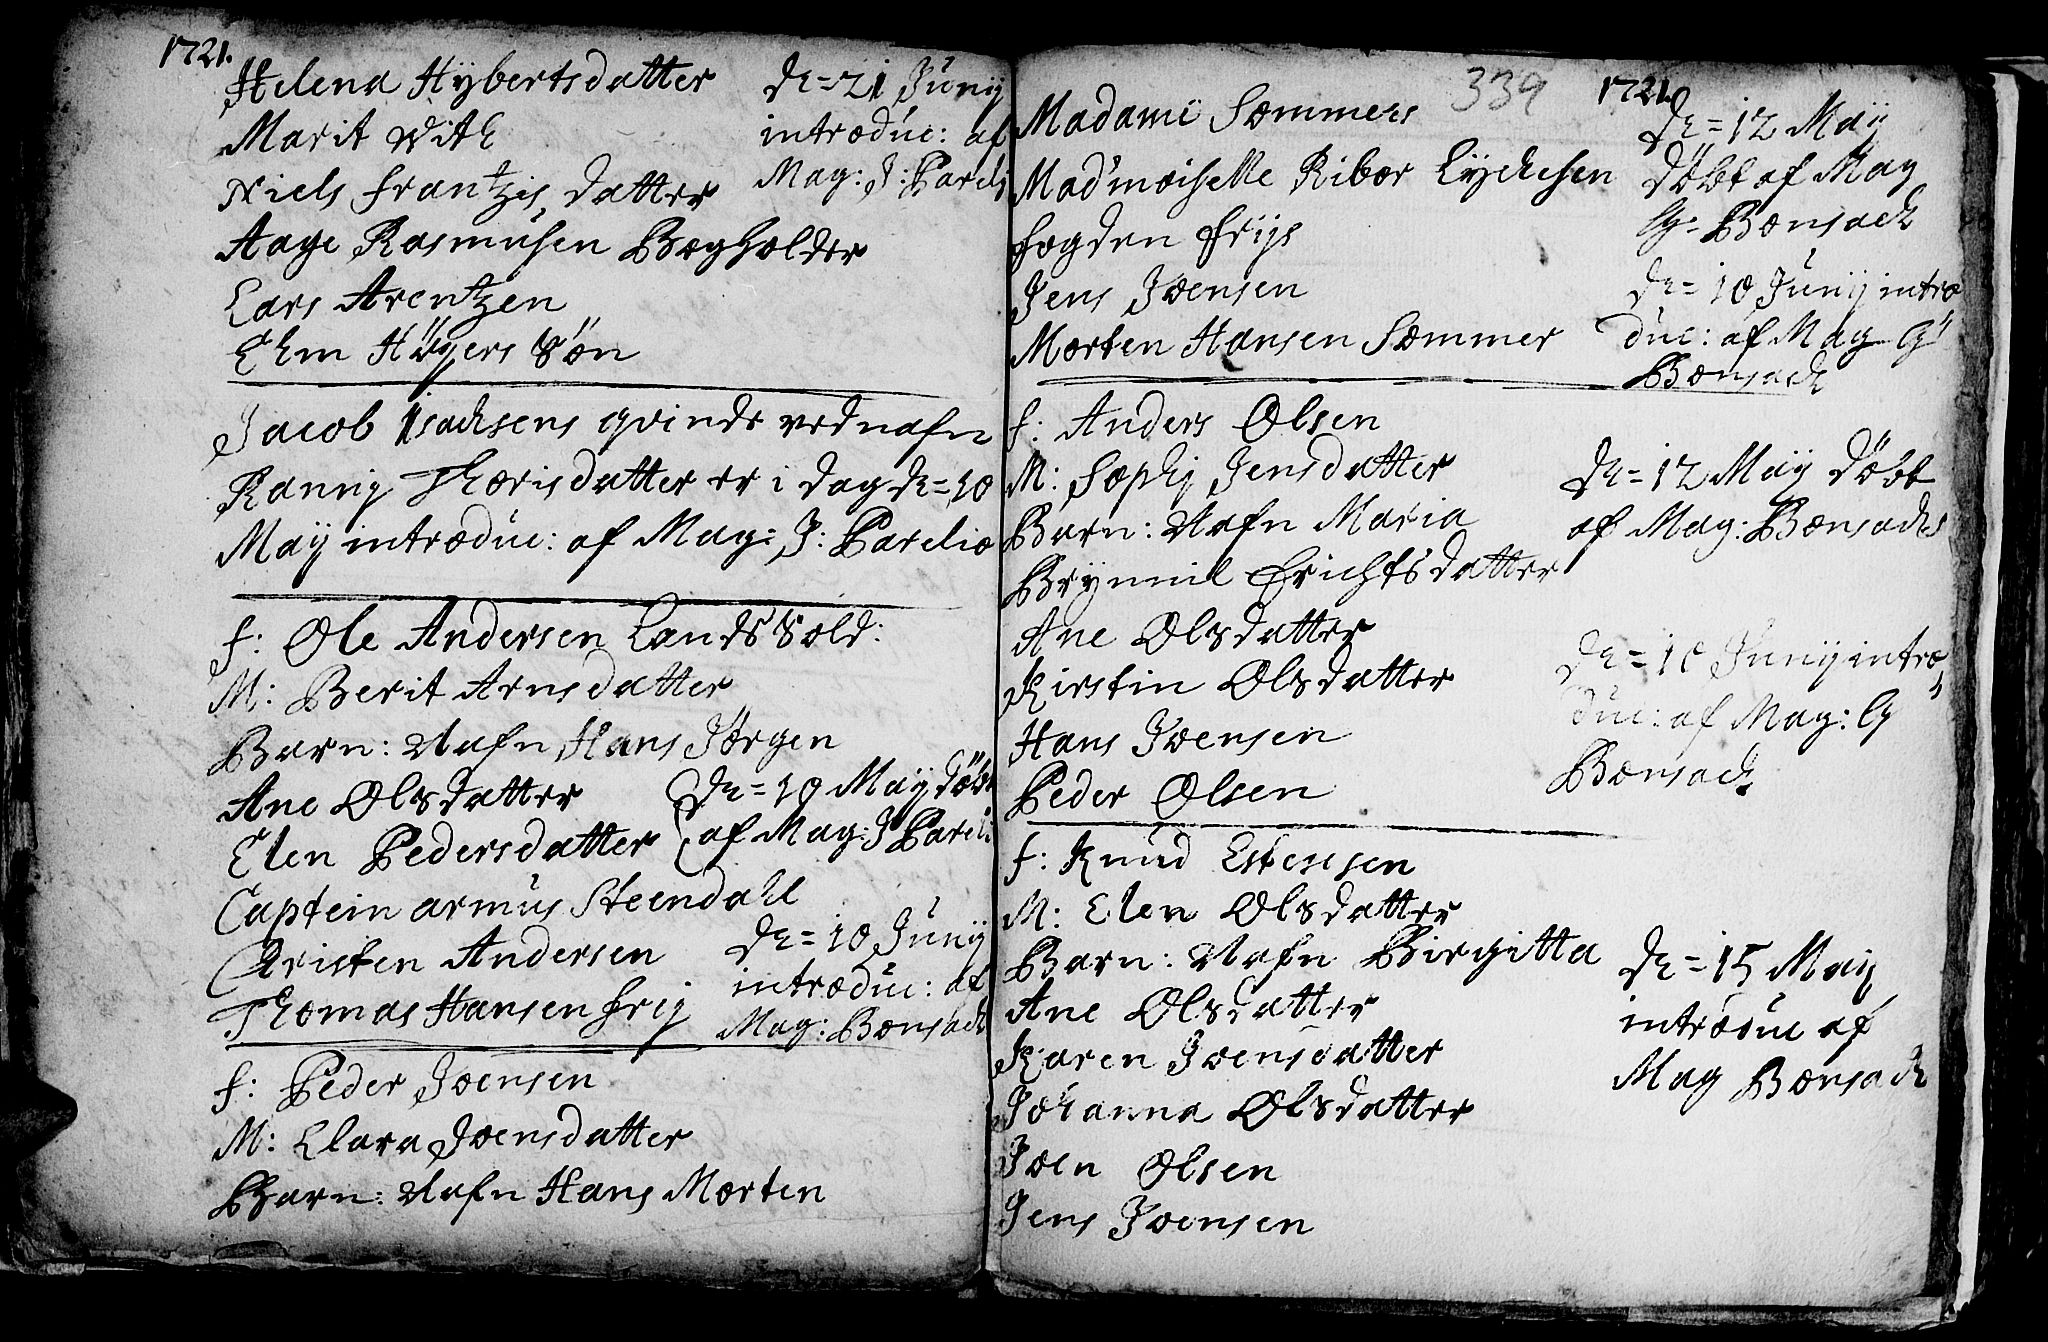 1721.
Helena Hÿbertsdatter
Marit With
Niels frantzis datter
Aage Rasmusen Bogholder
Lars Arentzen
Elm Höyers Sön
De=21 Junij
introduc: af
Mag: J: Pareli
Jacob Isachsens qvinde vednafn
Rannij Thorisdatter er i dag de=10
Maÿ introduc: af Mag: J: Parelio
f: Ole Andersen Lands Sold:
M: Berit Arnsdatter
Barn: Nafn Hans Jörgen
Ane Olsdatter
Elen Pedersdatter
Captein armus Steendahl
Christen Andersen
Thomas Hansen frij
De=10 Maÿ döbt
af Mag: J Pareli
De=10 Junij
introduc: af
Mag: Bonsach
f: Peder Joensen
M: Clara Joensdatter
Barn: Nafn Hans Morten
339
1721.
Madame Sommers
Madmoiselle Ribor Lÿchesen
fogden frijs
Jens Joensen
Morten Hansen Sommer
De=12 Maÿ
döbt af Mag
G: Bonsach
De=10 Junij intro
duc: af Mag G
Bonsach
f: Anders Olsen
M: Sophj Jensdatter
Barn: Nafn Maria
Brÿnnil Erichtsdatter
Ane Olsdatter
Kirstin Olsdatter
Hans Joensen
Peder Olsen
De=12 Maÿ döbt
af Mag: Bonsachs
De=10 Junij intro
duc: af Mag: G
Bonsach
f: Knud Estensen
M: Elen Olsdatter
Barn: Nafn Birgitta
Ane Olsdatter
Karen Joensdatter
Johanna Olsdatter
Joen Olsen
Jens Joensen
De=15 Maij
introduc af
Mag Bonsach